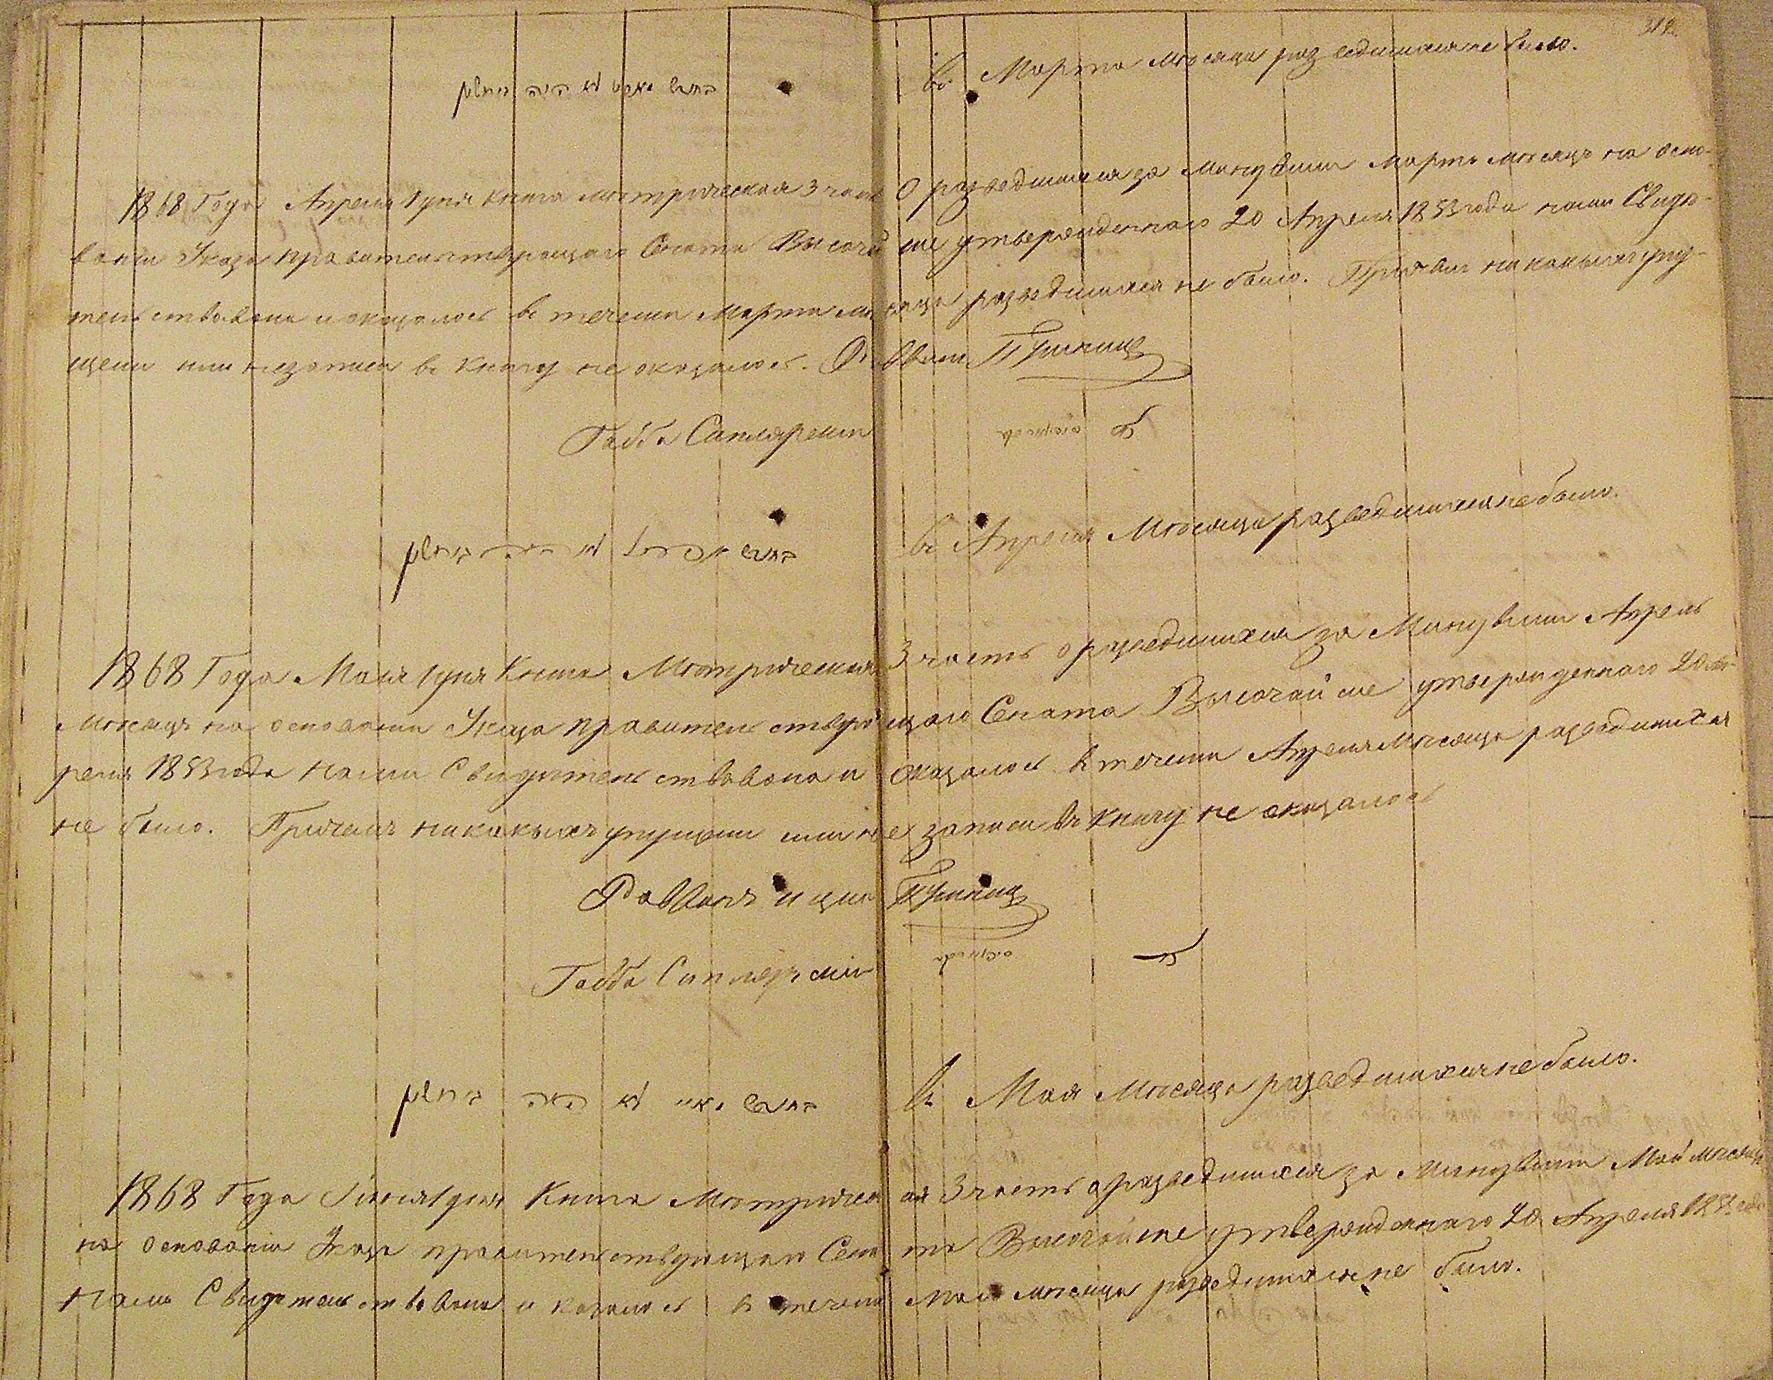 314
בחודש מארט לא היה גירושין
въ Марта месяца разведшихся не было.
1868 Года Апреля 1 дня Книга Метрическая 3 часть О разведшихся за Минувший Мартъ месяцъ на осно-
вании Указа Правительствующаго Сената Высочайше утвержденнаго 20 Апреля 1853 года нами Свиде-
тельствована и оказалось въ течении Марта месяца разведшихся не было. Причемъ никакихъ упу-
щении или незаписи въ книгу не оказалось.
Габбе
בחודש אפריל לא היה גירושין
въ Апреля Месяца разведшихся не было.
1868 Года Мая 1 дня Книга Метрическая 3 часть о разведшихся за Минувший Апрель
месяцъ на основании Указа Правительствующаго Сената Высочайше утвержденнаго 20 Ап-
реля 1853 года нами Свидетельствована и оказалось въ течении Апреля Месяца разведшихся
не было. Причемъ никакихъ упущении или не записи въ книгу не оказалось
Раввинъ
Габбе
בחודש מאיי לא היה גירושין
въ Мая Месяца разведшихся не было.
1868 Года Июня 1 дня Книга Метрическая 3 часть о разведшихся за минувший Май месяцъ
на основании Указа правительствующаго Сената Высочайше утвержденнаго 20 Апреля 1853 года
нами Свидетельствована и казалось въ течении Мая месяца разведшихся не было.